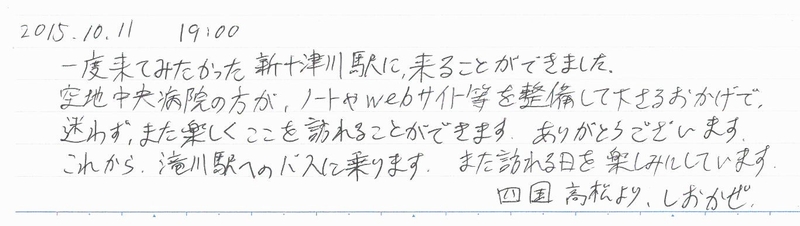 2015.10.11 19:00
一度来てみたかった新十津川駅に、来ることができました。
空地中央病院の方が、ノートやwebサイト等を整備して下さるおかげで、
迷わず、また楽しくここを訪れることができます. ありがとうございます.
これから、滝川駅へのバスに乗ります. また訪れる日を楽しみにしています.
四国 高松より、しおかぜ.